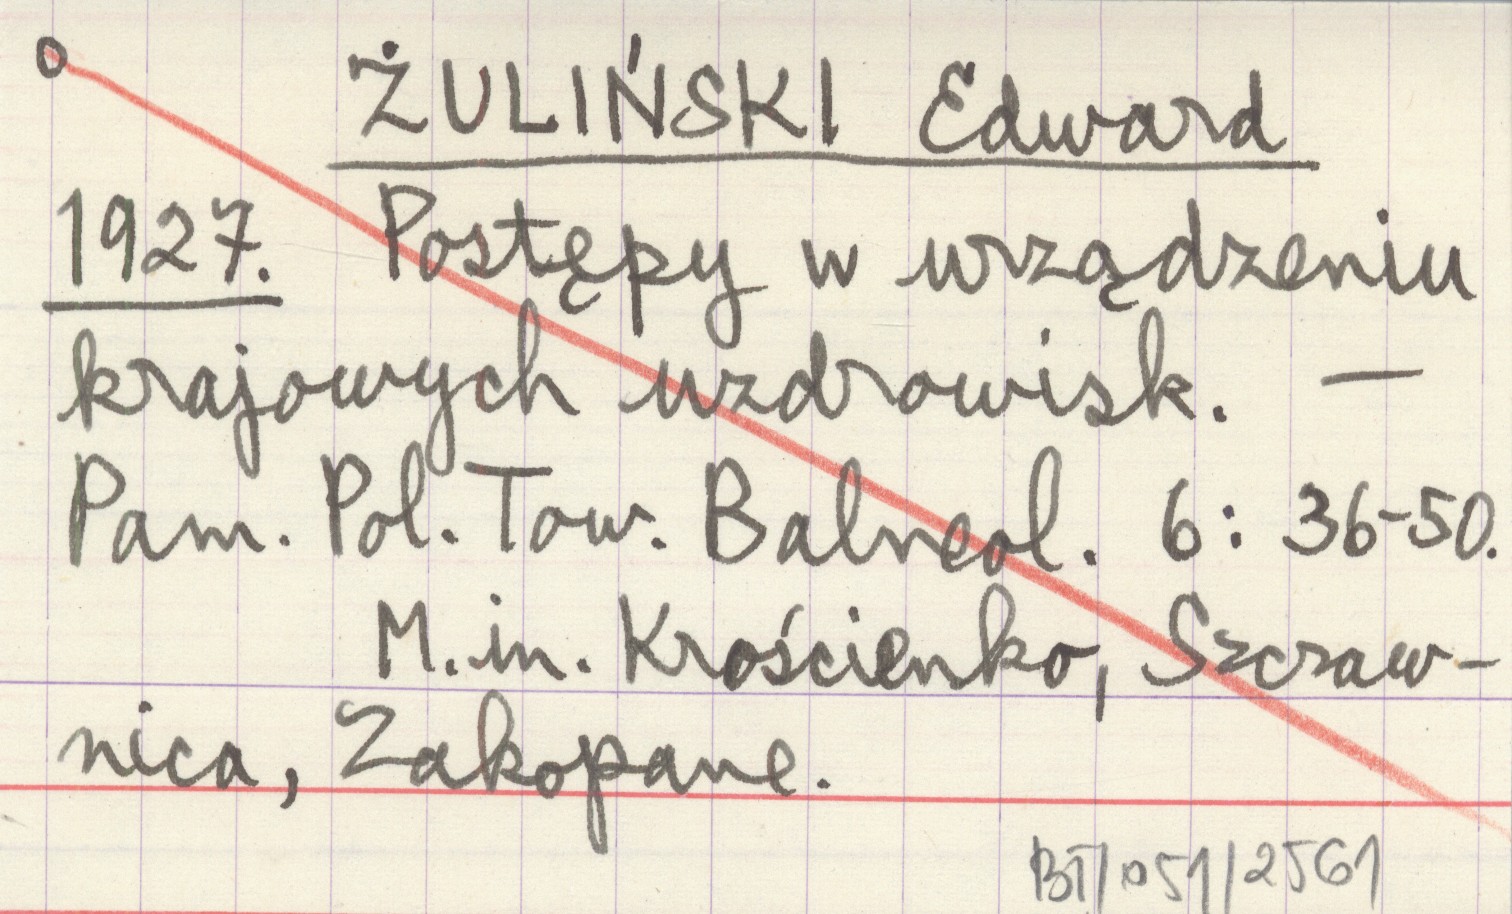 ŻULIŃSKI Edward
1927. Postępy w urządzeniu
krajowych uzdrowisk. —
Pam. Pol. Tow. Balneol. 6: 36-50.
M. in. Krościenko, Szczaw-
nica, Zakopane.
BT/051/2561